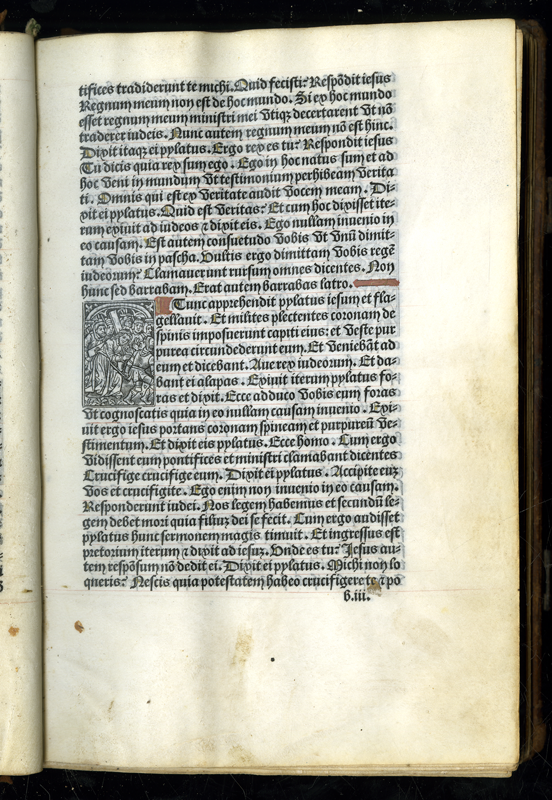 tifices tradiderunt te michi. Quid fecisti? Respōdit iesus
Regnum meum non est de hoc mundo. Si ex hoc mundo
esset regnum meum ministri mei vtiqʒ decertarent vt nō
traderer iudeis. Nunc autem regnum meum nō est hinc.
Dixit itaqʒ ei pylatus. Ergo rex es tu? Respondit iesus
Tu dicis quia rex sum ego. Ego in hoc natus sum et ad
hoc veni in mundum vt testimonium perhibeam verita
ti. Omnis qui est ex veritate audit vocem meam. Di-
xit ei pylatus. Quid est veritas? Et cum hoc dixisset ite-
rum exiuit ad iudeos ⁊ dixit eis. Ego nullam inuenio in
eo causam. Est autem consuetudo vobis vt vnū dimit-
tam vobis in pascha. Vultis ergo dimittam vobis regē
iudeorum? Clamauerunt rursum omnes dicentes. Non
hunc sed barrabam. Erat autem barrabas latro.
Tunc apprehendit pylatus iesum et fla-
gellauit. Et milites plectentes coronam de
spinis imposuerunt capiti eius: et veste pur
purea circundederunt eum. Et veniebāt ad
eum et dicebant. Aue rex iudeorum. Et da-
bant ei alapas. Exiuit iterum pylatus fo-
ras et dixit. Ecce adduco vobis eum foras
vt cognoscatis quia in eo nullam causam inuenio. Exi-
uit ergo iesus portans coronam spineam et purpureū ve-
stimentum. Et dixit eis pylatus. Ecce homo. Cum ergo
vidissent eum pontifices et ministri clamabant dicentes
Crucifige crucifige eum. Dixit ei pylatus. Accipite euʒ
vos et crucifigite. Ego enim non inuenio in eo causam.
Responderunt iudei. Nos legem habemus et secundū le-
gem debet mori quia filiuʒ dei se fecit. Cum ergo audisset
pylatus hunc sermonem magis timuit. Et ingressus est
pretorium iterum ⁊ dixit ad iesuʒ. Vnde es tu? Jesus au-
tem respōsum nō dedit ei. Dixit ei pylatus. Michi non lo
queris? Nescis quia potestatem habeo crucifigere te ⁊ po
b.iii.